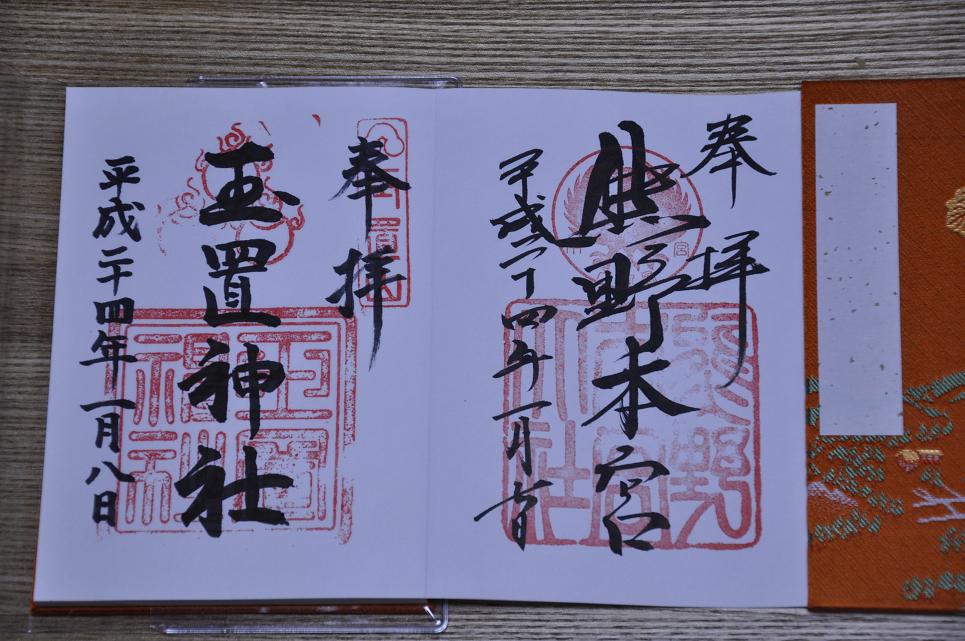 奉拝
熊野本宮
平成二十四年一月
熊野
本宮
大社
奉拝
玉置神社
平成二十四年一月八日
玉置
神社